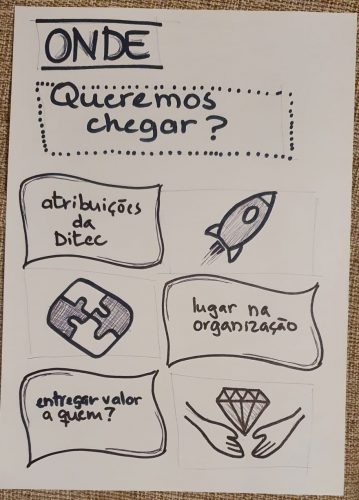 ONDE
Queremos
chegar?
atribuições
da
Ditec
lugar na
organização
entregar valor
a quem?